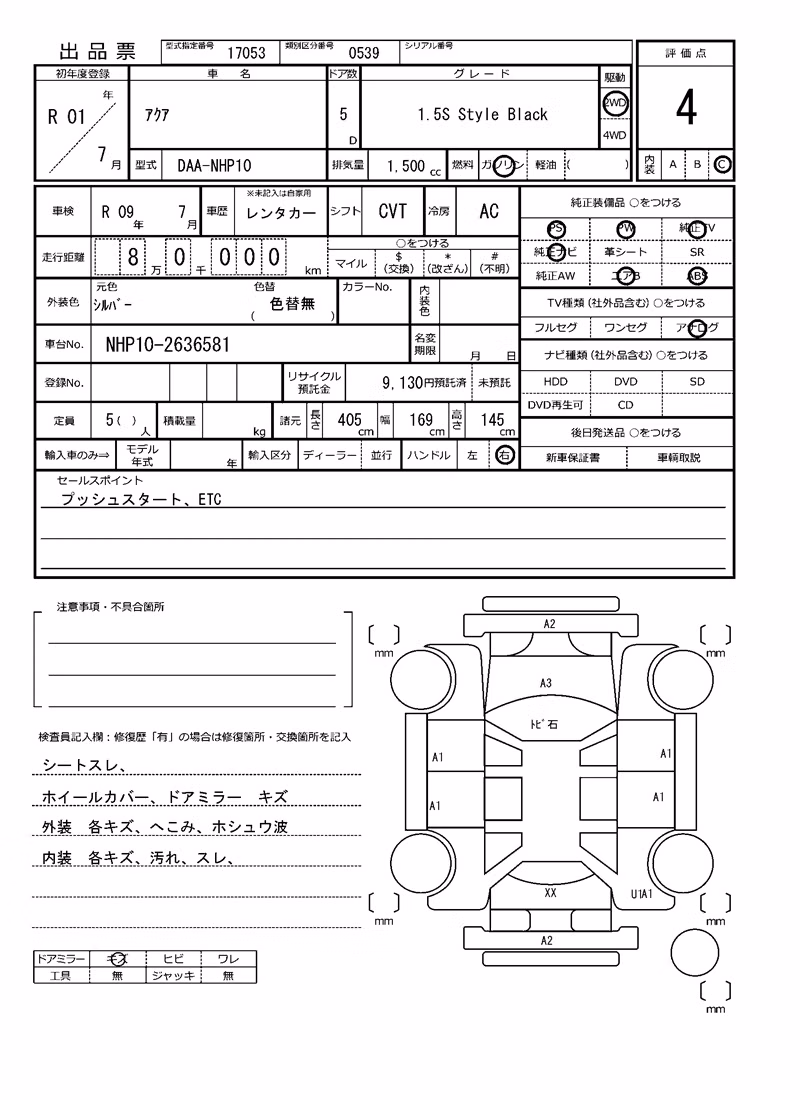 出品票 型式指定番号 17053 類別区分番号 0539 シリアル番号
評価点
4
内装 A B C
初年度登録 車名 ドア数 グレード 駆動
R 01 年 7 月 アクア 5 D 1.5S Style Black 2WD 4WD
型式 DAA-NHP10 排気量 1,500 cc 燃料 ガソリン 軽油 ( )
車検 R 09 年 7 月 車歴 ※未記入は自家用 レンタカー シフト CVT 冷房 AC
走行距離 8 万 0 千 0 0 0 km ○をつける
マイル $ (交換) * (改ざん) # (不明)
外装色 元色 シルバー 色替 ( 色替無 ) カラーNo. 内装色
車台No. NHP10-2636581 名変期限 月 日
登録No. リサイクル預託金 9,130円預託済 未預託
定員 5( )人 積載量 kg 諸元 長さ 405 cm 幅 169 cm 高さ 145 cm
輸入車のみ⇒ モデル年式 年 輸入区分 ディーラー 並行 ハンドル 左 右
純正装備品 ○をつける
PS PW 純正TV
純正ナビ 革シート SR
純正AW エアB ABS
TV種類(社外品含む)○をつける
フルセグ ワンセグ アナログ
ナビ種類(社外品含む)○をつける
HDD DVD SD
DVD再生可 CD
後日発送品 ○をつける
新車保証書 車輌取説
セールスポイント
プッシュスタート、ETC
注意事項・不具合箇所
検査員記入欄:修復歴「有」の場合は修復箇所・交換箇所を記入
シートスレ、
ホイールカバー、ドアミラー キズ
外装 各キズ、へこみ、ホシュウ波
内装 各キズ、汚れ、スレ、
ドアミラー キズ ヒビ ワレ
工具 無 ジャッキ 無
A2
mm mm
A3
トビ石
A1 A1
A1 A1
XX U1A1
mm mm
A2
mm